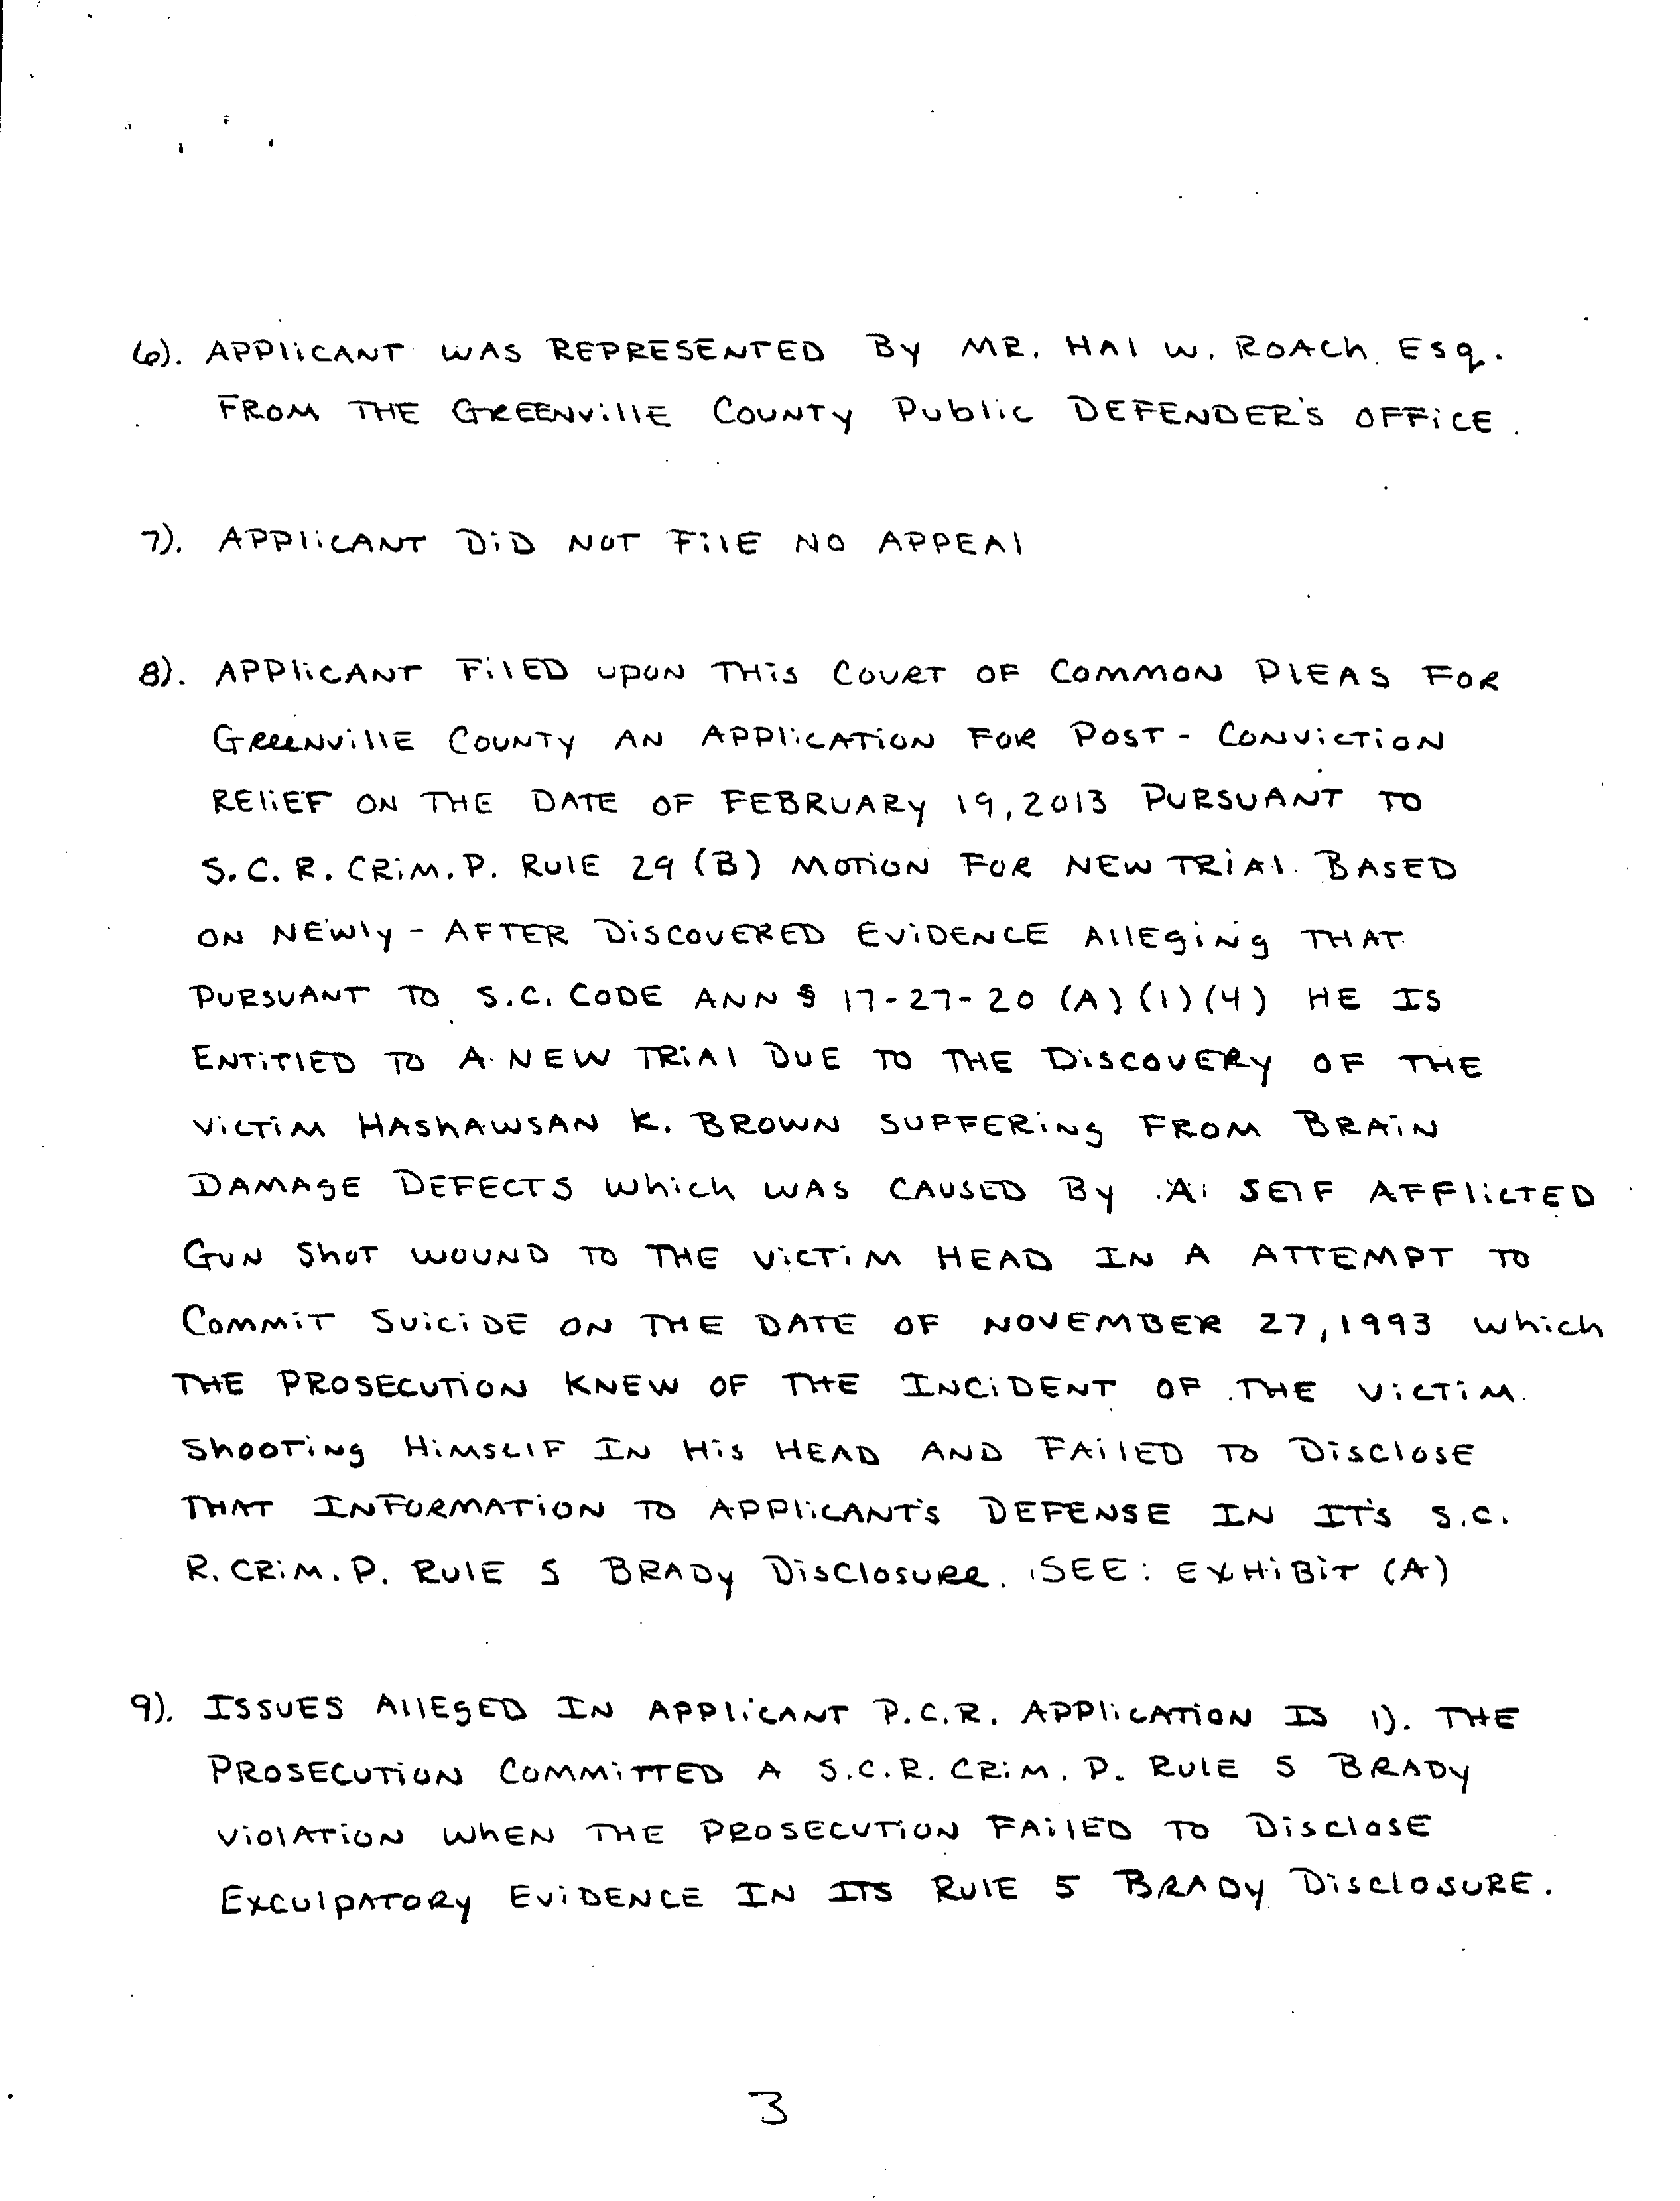 6). APPliCANT WAS REPRESENTED By MR. HAl W. ROACh Esq.
FROM THE GREENVillE COUNTY Public DEFENDER'S OFFiCE.
7). APPliCANT DiD NOT FilE NO APPEAl
8). APPliCANT FilED upON THis COURT OF COMMON PlEAS FOR
GREENVillE COUNTY AN APPliCATiON FOR POST - CONViCTiON
REliEF ON THE DATE OF FEBRUARy 19, 2013 PURSUANT TO
S.C.R. CRiM. P. RUlE 29 (B) MOTiON FOR NEW TRiAl. BASED
ON NEWly - AFTER DiSCOVERED EViDENCE AllEging THAT
PURSUANT TO S.C. CODE ANN § 17-27-20 (A) (1) (4) HE IS
ENTiTlED TO A NEW TRiAl DUE TO THE DiSCOVERy OF THE
ViCTiM HASHAWSAN K. BROWN SUFFERiNg FROM BRAiN
DAMAgE DEFECTS which WAS CAUSED By A SElF AFFliCTED
GUN ShOT WOUND TO THE ViCTiM HEAD IN A ATTEMPT TO
COMMiT SuiciDE ON THE DATE OF NOVEMBER 27, 1993 which
THE PROSECUTiON KNEW OF THE INCiDENT OF THE ViCTiM
ShOOTiNg HiMSElF IN His HEAD AND FAilED TO DiSClOSE
THAT INFORMATiON TO APPliCANT'S DEFENSE IN IT'S S.C.
R. CRiM. P. RUlE 5 BRADy DiSClOSURE. SEE: EXHiBiT (A)
9). ISSUES AllEgED IN APPliCANT P.C.R. APPliCATiON IS 1). THE
PROSECUTiON COMMiTTED A S.C.R. CRiM. P. RUlE 5 BRADy
ViOlATiON WhEN THE PROSECUTiON FAilED TO DiSClOSE
EXCUlpATORy EViDENCE IN ITS RUlE 5 BRADy DiSClOSURE.
3